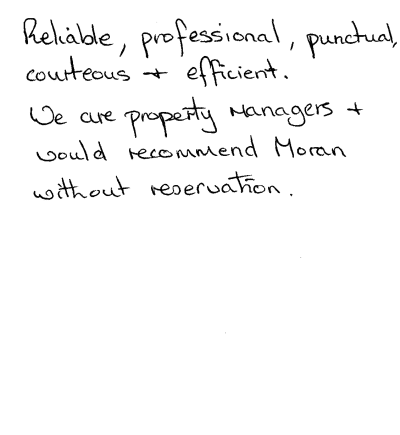 Reliable, professional, punctual,
courteous + efficient.
We are property managers +
would recommend Moran
without reservation.